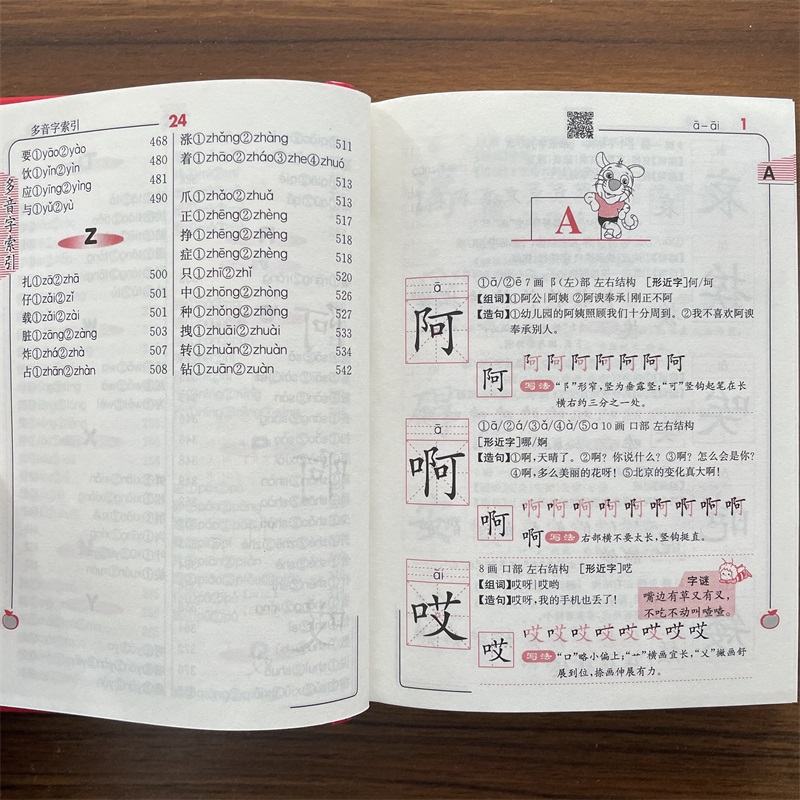 多音字索引
24
多音字索引
要①yāo②yào 468
饮①yǐn②yìn 480
应①yīng②yìng 481
与①yǔ②yù 490
Z
扎①zā②zhā 500
仔①zǎi②zǐ 501
载①zǎi②zài 501
脏①zāng②zàng 503
炸①zhá②zhà 507
占①zhān②zhàn 508
涨①zhǎng②zhàng 511
着①zhāo②zháo③zhe④zhuó
513
爪①zhǎo②zhuǎ 513
正①zhēng②zhèng 517
挣①zhēng②zhèng 518
症①zhēng②zhèng 518
只①zhī②zhǐ 520
中①zhōng②zhòng 526
种①zhǒng②zhòng 527
拽①zhuāi②zhuài 533
转①zhuǎn②zhuàn 534
钻①zuān②zuàn 542
ā–āi 1
A
A
ā
阿
①ā/②ē 7画 阝(左)部 左右结构 [形近字]何/坷
【组词】①阿公|阿姨 ②阿谀奉承|刚正不阿
【造句】①幼儿园的阿姨照顾我们十分周到。②我不喜欢阿谀
奉承别人。
阿 阿阿阿阿阿阿阿
写法 “阝”形窄,竖为垂露竖;“可”竖钩起笔在长
横右约三分之一处。
ā
啊
①ā/②á/③ǎ/④à/⑤a 10画 口部 左右结构
[形近字]哪/婀
【造句】①啊,天晴了。②啊?你说什么?③啊?怎么会是你?
④啊,多么美丽的花呀!⑤北京的变化真大啊!
啊 啊啊啊啊啊啊啊啊啊
啊 写法 右部横不要太长,竖钩挺直。
āi
哎
8画 口部 左右结构 [形近字]呓
【组词】哎呀|哎哟
【造句】哎呀,我的手机也丢了!
字谜
嘴边有草又有叉,
不吃不动叫喳喳。
哎 哎哎哎哎哎哎哎哎
写法 “口”略小偏上;“艹”横画宜长,“乂”撇画舒
展到位,捺画伸展有力。